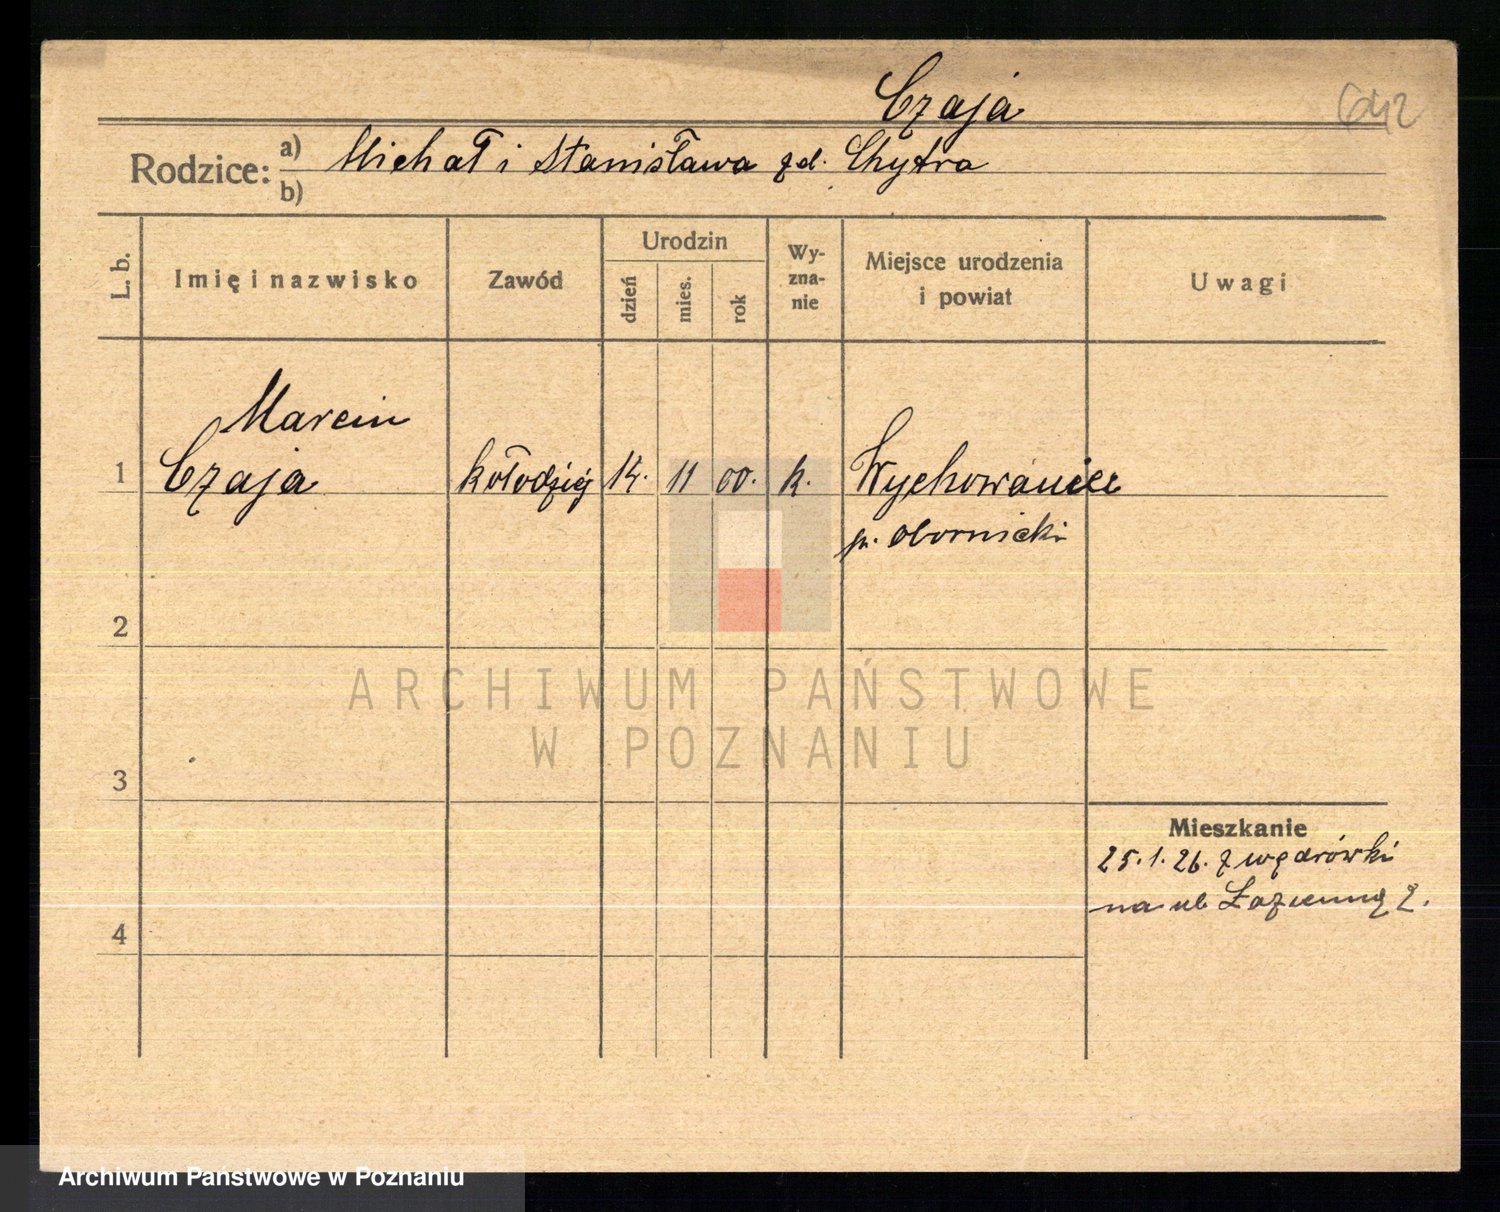 Czaja
642
Rodzice: a) Michał i Stanisława zd. Chytra
b)
L. b. Imię i nazwisko Zawód Urodzin dzień mies. rok Wy-zna-nie Miejsce urodzenia i powiat Uwagi
Marcin
1 Czaja kołodziej 14. 11 00. k. Wychowaniec
p. obornicki
2
ARCHIWUM PAŃSTWOWE
W POZNANIU
3
Mieszkanie
25.1.26. z wędrówki
na ul Łazienną 2.
4
Archiwum Państwowe w Poznaniu